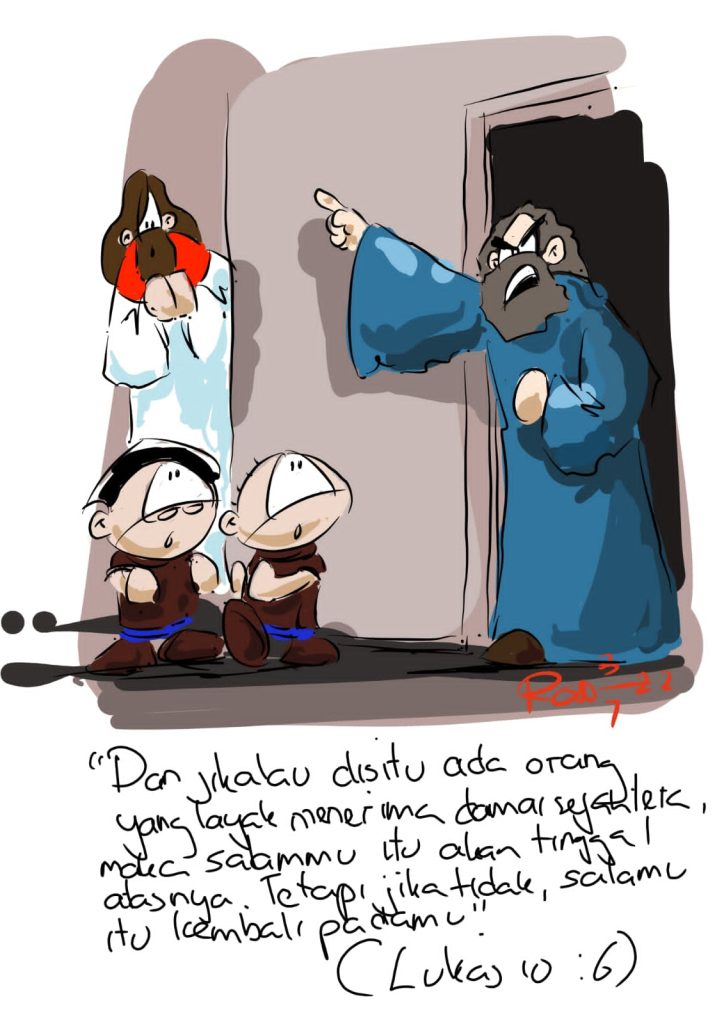 ROD 3/7-22
"Dan jikalau disitu ada orang
yang layak menerima damai sejahtera,
maka salammu itu akan tinggal
atasnya. Tetapi, jika tidak, salamu
itu kembali padamu".
(Lukas 10 : 6)